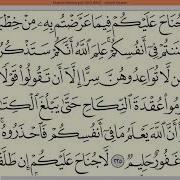 جُنَاحَ عَلَيْكُمْ فِيمَا عَرَّضْتُم بِهِۦ مِنْ خِطْبَ
نَنتُمْ فِىٓ أَنفُسِكُمْ ۚ عَلِمَ ٱللَّهُ أَنَّكُمْ سَتَذْكُرُ
ن لَّا تُوَاعِدُوهُنَّ سِرًّا إِلَّآ أَن تَقُولُوا۟ قَوْلًا
مُوا۟ عُقْدَةَ ٱلنِّكَاحِ حَتَّىٰ يَبْلُغَ ٱلْكِتَا
أَنَّ ٱللَّهَ يَعْلَمُ مَا فِىٓ أَنفُسِكُمْ فَٱحْذَرُوهُ ۚ
غَفُورٌ حَلِيمٌ ٢٣٥ لَّا جُنَاحَ عَلَيْكُمْ إِن طَلَّقْ